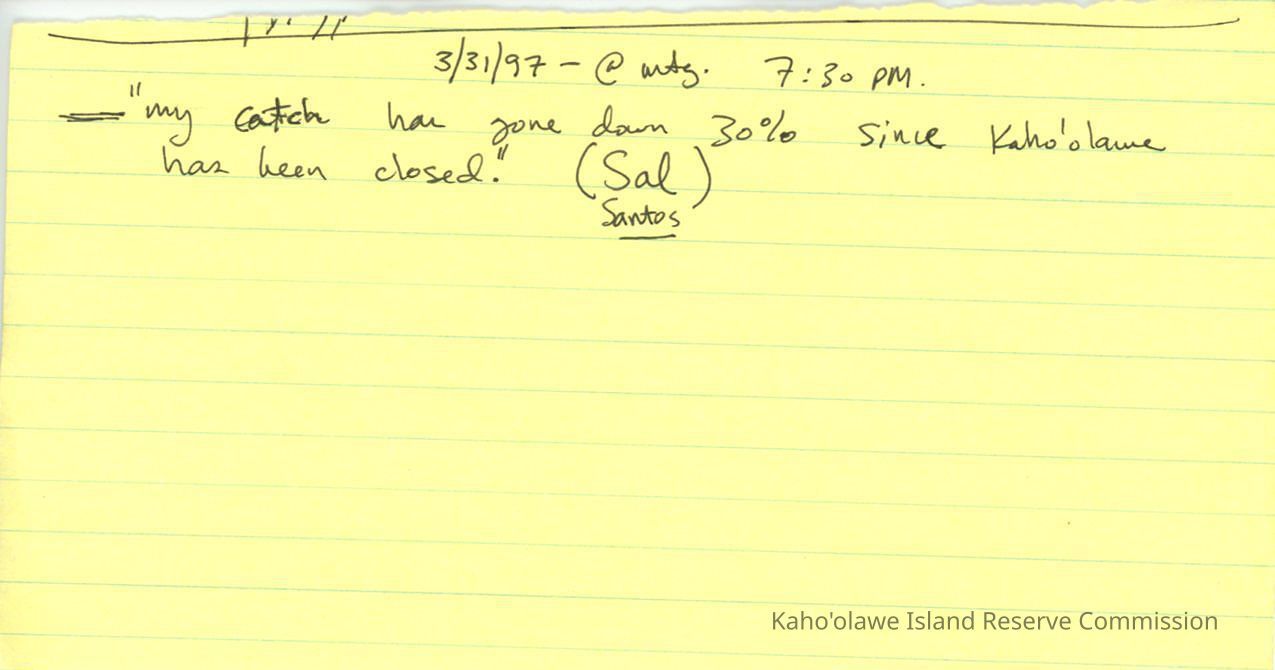 3/31/97 - @ mtg. 7:30 PM.
"my catch has gone down 30% since Kaho'olawe
has been closed." (Sal)
Santos
Kaho'olawe Island Reserve Commission